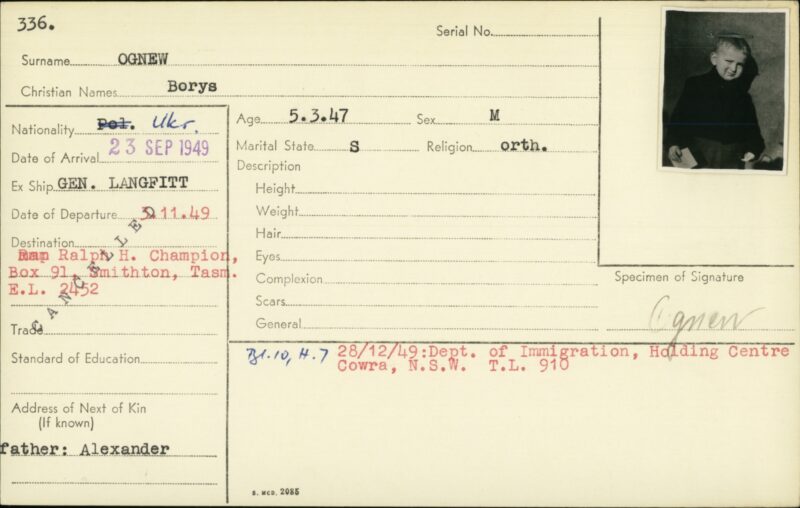 336.
Serial No.
Surname OGNEW
Christian Names Borys
Nationality Pol. Ukr.
Date of Arrival 23 SEP 1949
Ex Ship GEN. LANGFITT
Date of Departure 3.11.49
Destination
Ralph H. Champion,
Box 91, Smithton, Tasm.
E.L. 2452
CANCELLED
Trade
Standard of Education
Address of Next of Kin
(If known)
father: Alexander
Age 5.3.47 Sex M
Marital State S Religion orth.
Description
Height
Weight
Hair
Eyes
Complexion
Scars
General
Specimen of Signature
Ognew
Bl.10, H.7 28/12/49:Dept. of Immigration, Holding Centre
Cowra, N.S.W. T.L. 910
S. MCD. 2085